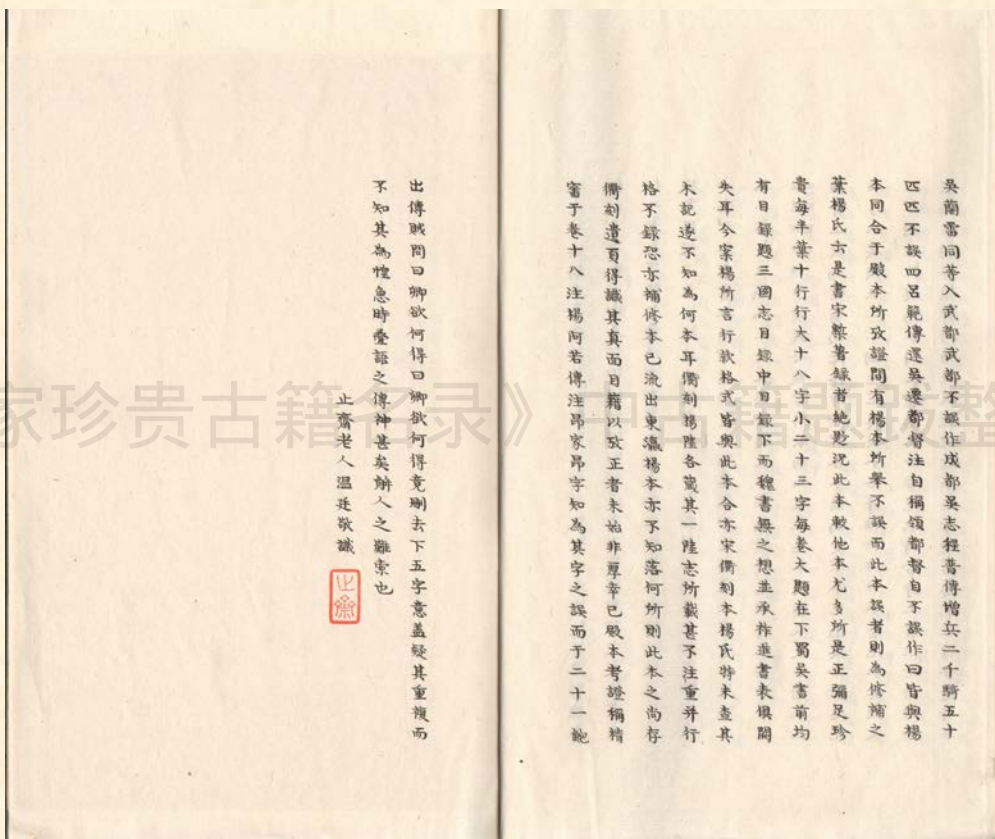 吳蘭雷同等入武都武都不誤作成都吳志程普傳增兵二千騎五十
匹匹不誤四呂範傳還吳遷都督注自稱領都督自不誤作曰皆與楊
本同合于殿本所攷證間有楊本所舉不誤而此本誤者則為修補之
葉楊氏云是書宋槧著錄者絶尠況此本較他本尤多所是正彌足珍
貴每半葉十行行大十八字小二十三字每卷大題在下蜀吳書前均
有目錄題三國志目錄中目錄下而魏書無之想並承祚進書表俱闕
失耳今案楊所言行款格式皆與此本合亦宋衢刻本楊氏特未查其
木記遂不知為何本耳衢刻楊陸各藏其一陸志所載甚不注重并行
格不錄恐亦補修本已流出東瀛楊本亦不知落何所則此本之尚存
衢刻遺頁得識其真面目籍以攷正者未始非厚幸已殿本考證稱精
審于卷十八注楊阿若傳注昂家昂字知為其字之誤而于二十一鮑
出傳賊問曰卿欲何得曰卿欲何得竟刪去下五字意蓋疑其重複而
不知其為惶急時疊語之傳神甚矣解人之難索也
止齋老人温廷敬識
止齋
家珍贵古籍名录》中古籍题跋整